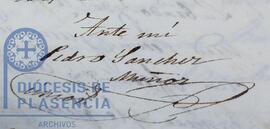 Ante mí
Pedro Sanchez
Muñoz
DIÓCESIS DE
PLASENCIA
ARCHIVOS